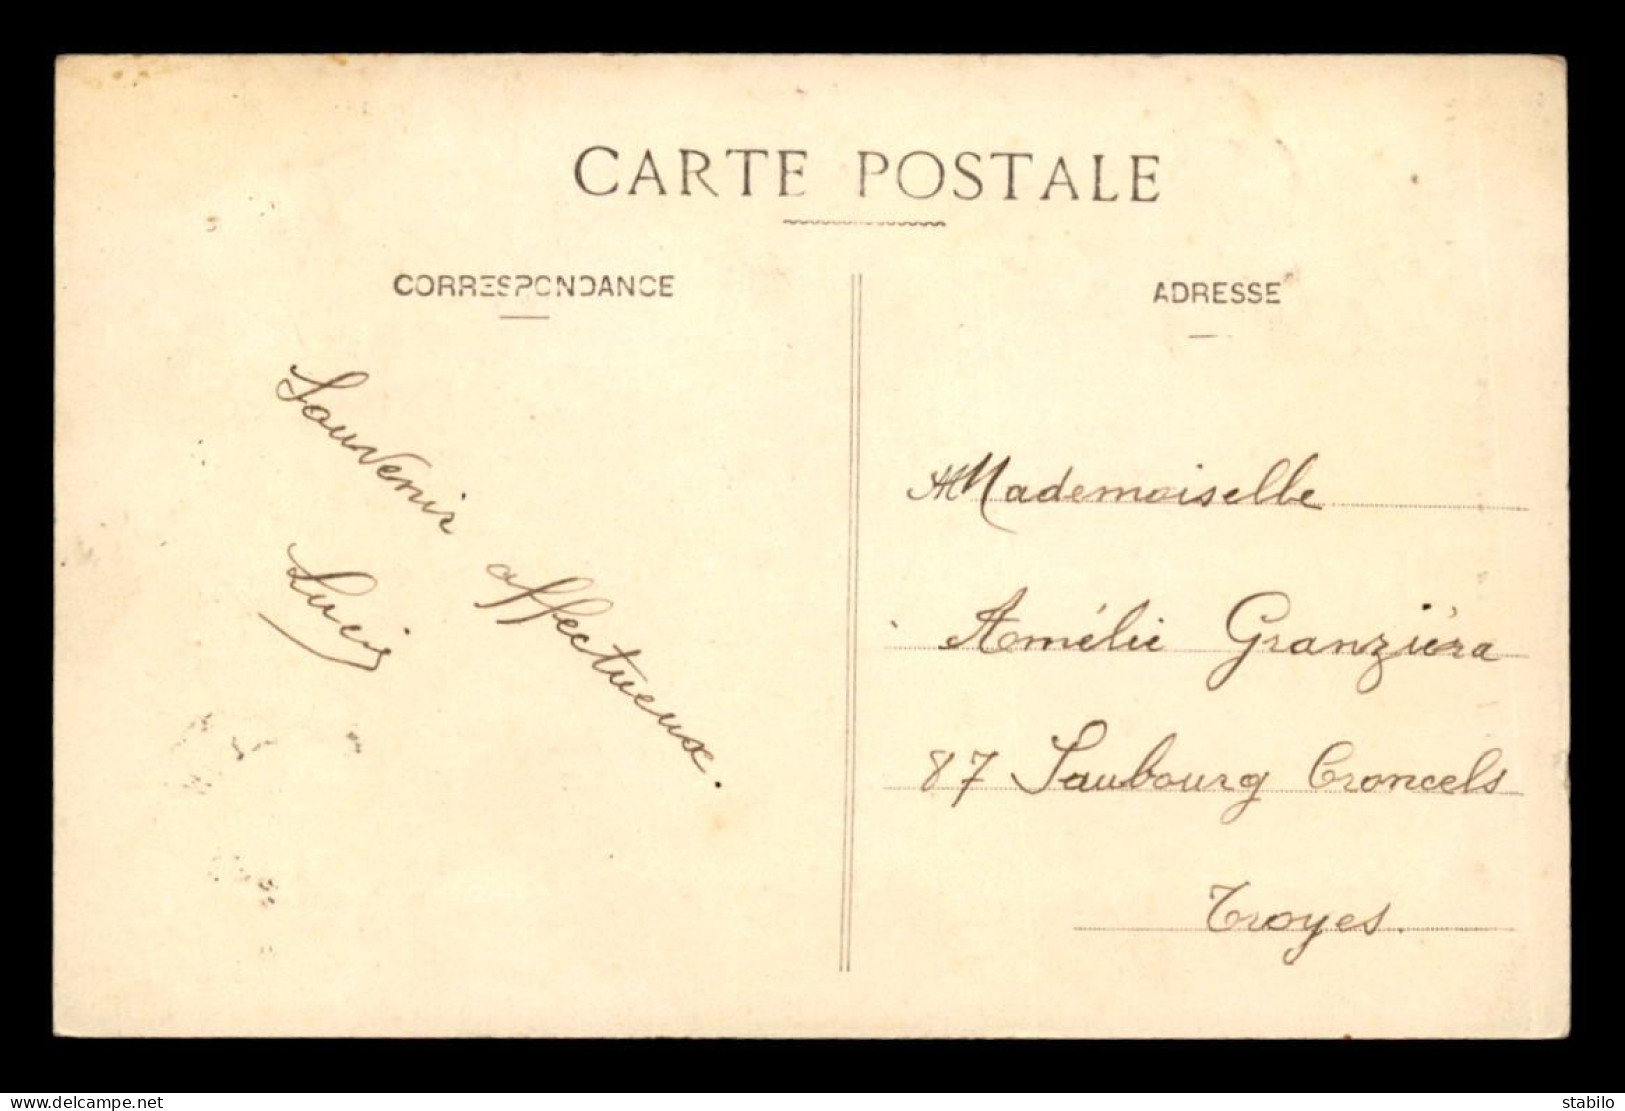 CARTE POSTALE
CORRESPONDANCE
ADRESSE
Souvenir affectueux.
Lucie
Mademoiselle
Amélie Granziéra
87 Faubourg Croncels
Troyes.
www.delcampe.net
stabilo